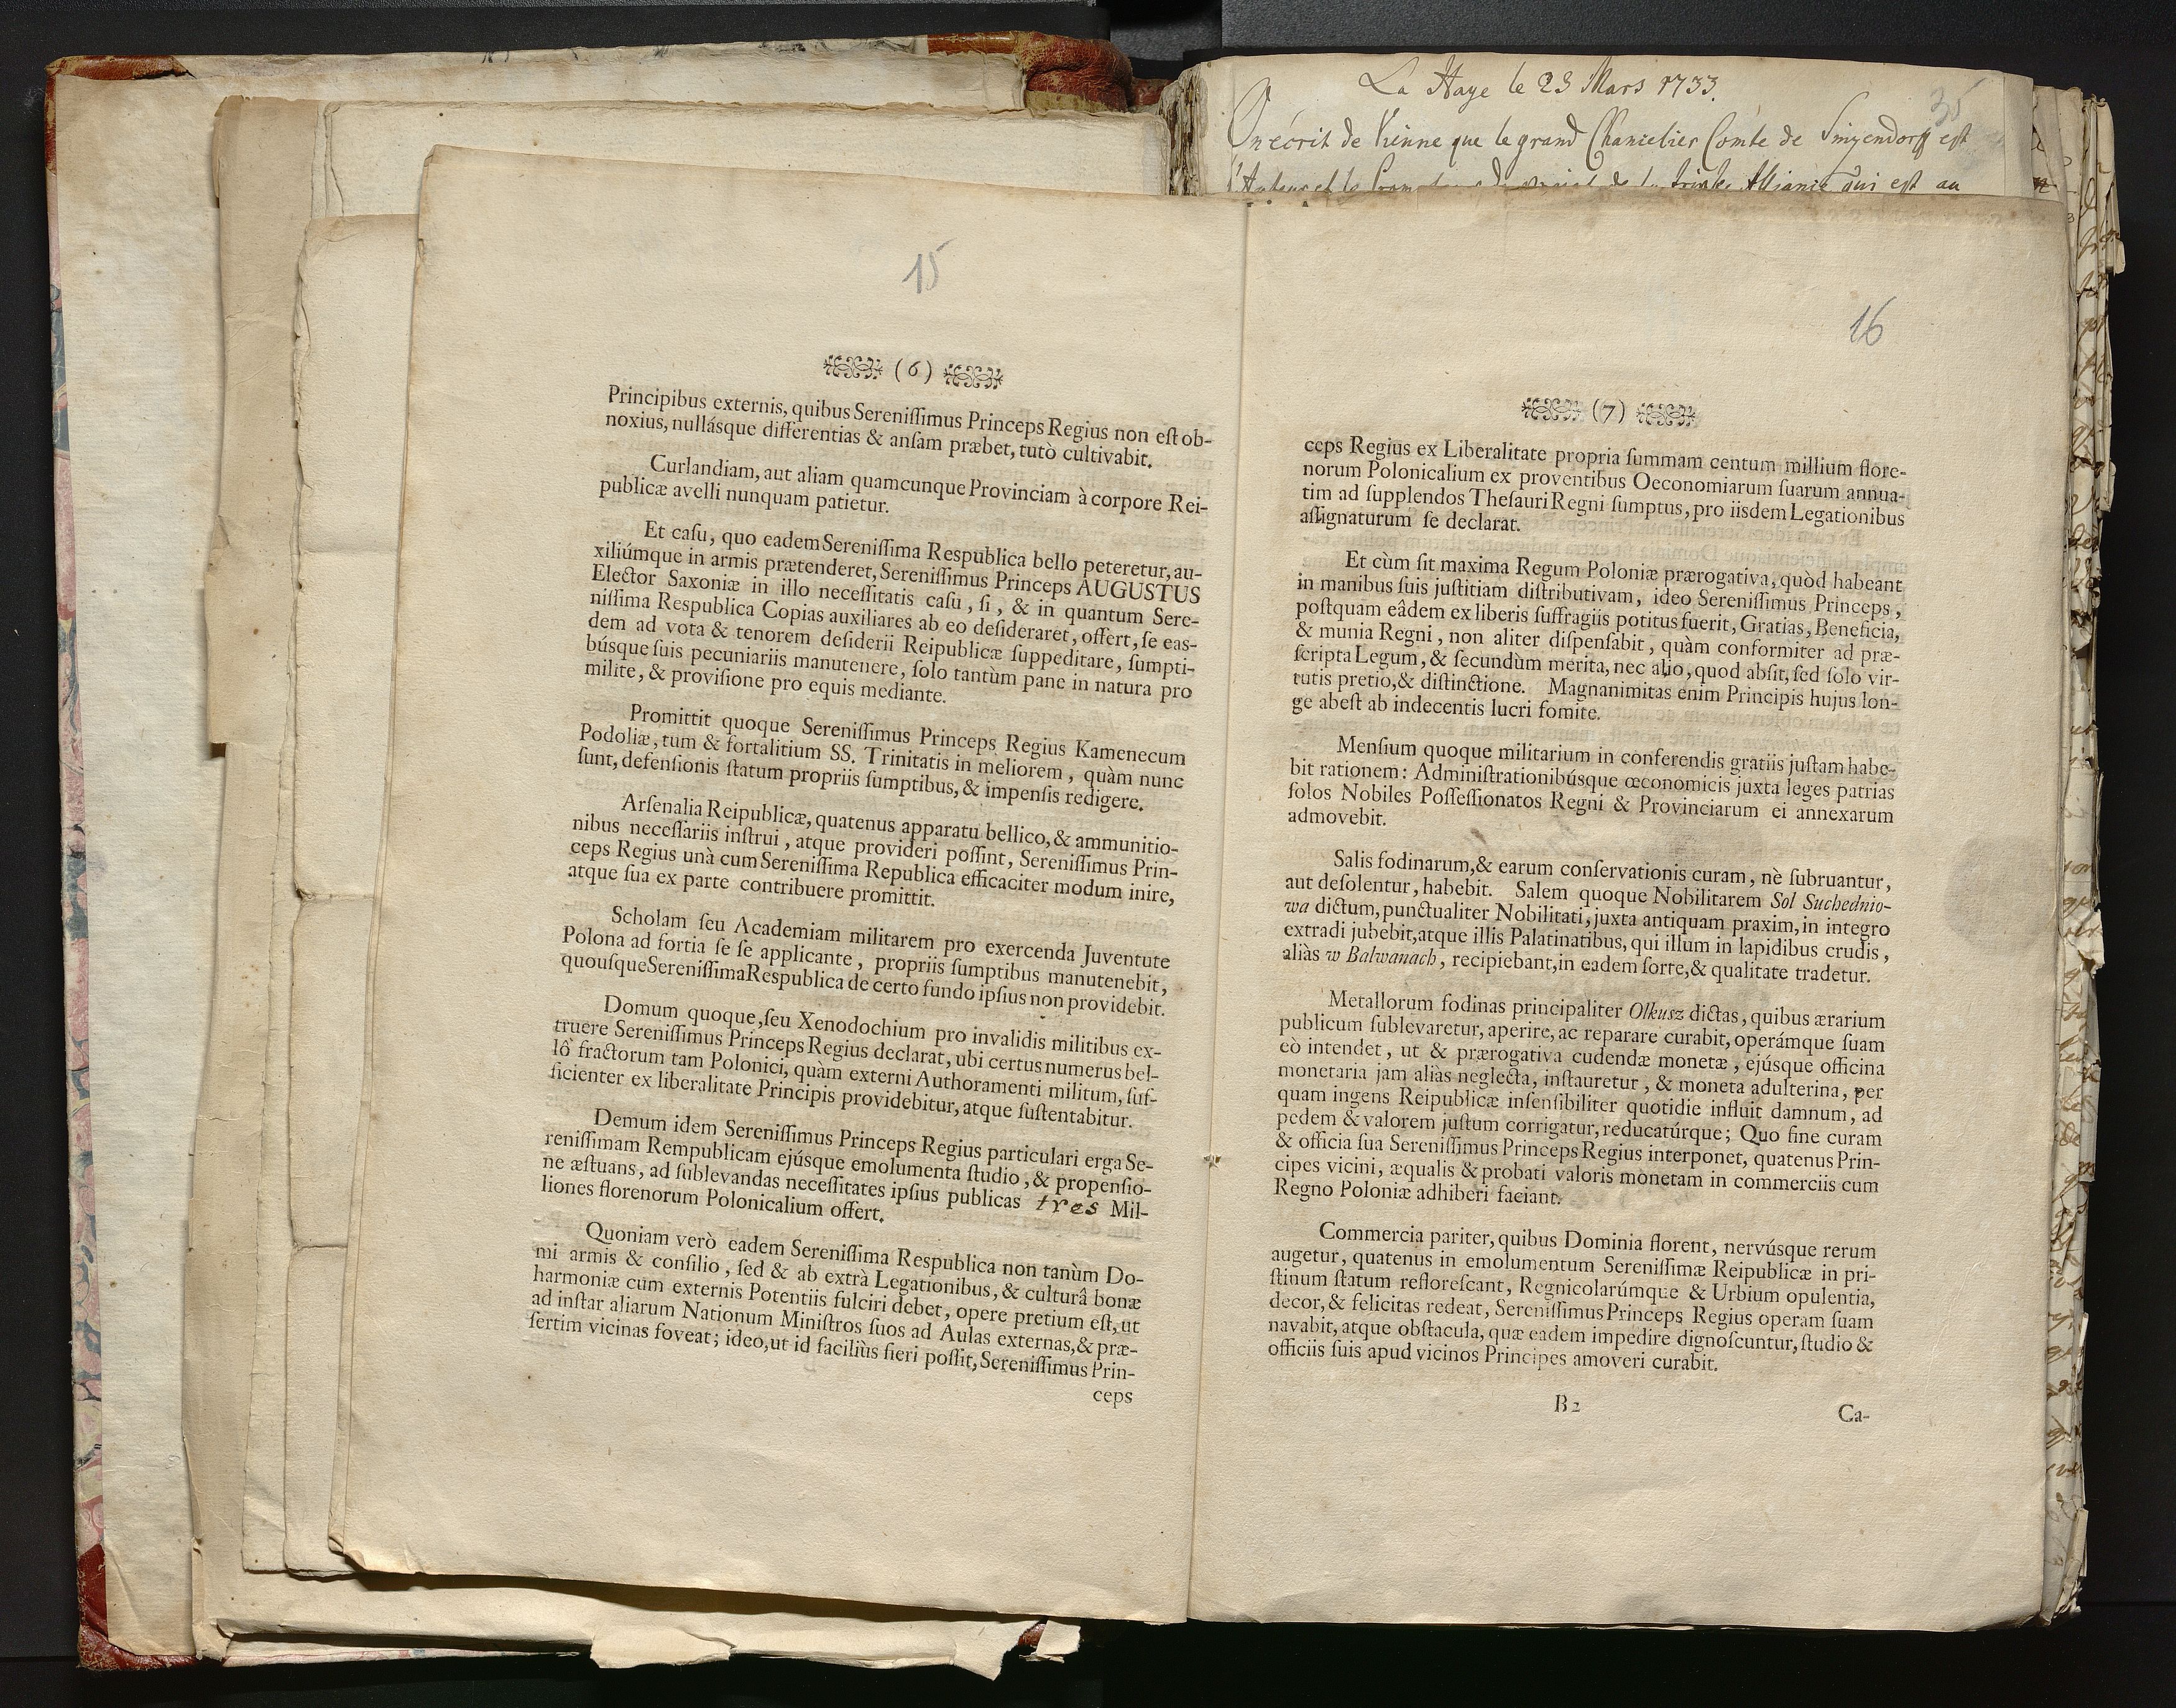 La Haye le 23 Mars 1733.
35
On écrit de Vienne que le grand Chancelier Comte de Sinzendorff est
l'Auteur et le de la triple Alliance qui est au
15
(6)
Principibus externis, quibus Sereniſſimus Princeps Regius non eſt ob-
noxius, nullásque differentias & anſam præbet, tutò cultivabit.
Curlandiam, aut aliam quamcunque Provinciam à corpore Rei-
publicæ avelli nunquam patietur.
Et caſu, quo eadem Sereniſſima Respublica bello peteretur, au-
xiliúmque in armis prætenderet, Sereniſſimus Princeps AUGUSTUS
Elector Saxoniæ in illo neceſſitatis caſu, ſi, & in quantum Sere-
niſſima Respublica Copias auxiliares ab eo deſideraret, offert, ſe eas-
dem ad vota & tenorem deſiderii Reipublicæ ſuppeditare, ſumpti-
búsque ſuis pecuniariis manutenere, ſolo tantùm pane in natura pro
milite, & proviſione pro equis mediante.
Promittit quoque Sereniſſimus Princeps Regius Kamenecum
Podoliæ, tum & fortalitium SS. Trinitatis in meliorem, quàm nunc
ſunt, defenſionis ſtatum propriis ſumptibus, & impenſis redigere.
Arſenalia Reipublicæ, quatenus apparatu bellico, & ammunitio-
nibus neceſſariis inſtrui, atque provideri poſſint, Sereniſſimus Prin-
ceps Regius unà cum Sereniſſima Republica efficaciter modum inire,
atque ſua ex parte contribuere promittit.
Scholam ſeu Academiam militarem pro exercenda Juventute
Polona ad fortia ſe ſe applicante, propriis ſumptibus manutenebit,
quouſque Sereniſſima Respublica de certo fundo ipſius non providebit.
Domum quoque, ſeu Xenodochium pro invalidis militibus ex-
truere Sereniſſimus Princeps Regius declarat, ubi certus numerus bel-
lô fractorum tam Polonici, quàm externi Authoramenti militum, ſuf-
ficienter ex liberalitate Principis providebitur, atque ſuſtentabitur.
Demum idem Sereniſſimus Princeps Regius particulari erga Se-
reniſſimam Rempublicam ejúsque emolumenta ſtudio, & propenſio-
ne æſtuans, ad ſublevandas neceſſitates ipſius publicas tres Mil-
liones florenorum Polonicalium offert.
Quoniam verò eadem Sereniſſima Respublica non tanùm Do-
mi armis & conſilio, ſed & ab extrà Legationibus, & culturâ bonæ
harmoniæ cum externis Potentiis fulciri debet, opere pretium eſt, ut
ad inſtar aliarum Nationum Miniſtros ſuos ad Aulas externas, & præ-
ſertim vicinas foveat; ideo, ut id faciliùs fieri poſſit, Sereniſſimus Prin-
ceps
16
(7)
ceps Regius ex Liberalitate propria ſummam centum millium flore-
norum Polonicalium ex proventibus Oeconomiarum ſuarum annua-
tim ad ſupplendos Theſauri Regni ſumptus, pro iisdem Legationibus
aſſignaturum ſe declarat.
Et cùm ſit maxima Regum Poloniæ prærogativa, quòd habeant
in manibus ſuis juſtitiam diſtributivam, ideo Sereniſſimus Princeps,
poſtquam eâdem ex liberis ſuffragiis potitus fuerit, Gratias, Beneficia,
& munia Regni, non aliter diſpenſabit, quàm conformiter ad præ-
ſcripta Legum, & ſecundùm merita, nec alio, quod abſit, ſed ſolo vir-
tutis pretio, & diſtinctione. Magnanimitas enim Principis hujus lon-
ge abeſt ab indecentis lucri fomite.
Menſium quoque militarium in conferendis gratiis juſtam habe-
bit rationem: Adminiſtrationibúsque œconomicis juxta leges patrias
ſolos Nobiles Poſſeſſionatos Regni & Provinciarum ei annexarum
admovebit.
Salis fodinarum, & earum conſervationis curam, nè ſubruantur,
aut deſolentur, habebit. Salem quoque Nobilitarem Sol Suchednio-
wa dictum, punctualiter Nobilitati, juxta antiquam praxim, in integro
extradi jubebit, atque illis Palatinatibus, qui illum in lapidibus crudis,
aliàs w Balwanach, recipiebant, in eadem ſorte, & qualitate tradetur.
Metallorum fodinas principaliter Olkusz dictas, quibus ærarium
publicum ſublevaretur, aperire, ac reparare curabit, operámque ſuam
eò intendet, ut & prærogativa cudendæ monetæ, ejúsque officina
monetaria jam aliàs neglecta, inſtauretur, & moneta adulterina, per
quam ingens Reipublicæ inſenſibiliter quotidie influit damnum, ad
pedem & valorem juſtum corrigatur, reducatúrque; Quo fine curam
& officia ſua Sereniſſimus Princeps Regius interponet, quatenus Prin-
cipes vicini, æqualis & probati valoris monetam in commerciis cum
Regno Poloniæ adhiberi faciant.
Commercia pariter, quibus Dominia florent, nervúsque rerum
augetur, quatenus in emolumentum Sereniſſimæ Reipublicæ in pri-
ſtinum ſtatum refloreſcant, Regnicolarúmque & Urbium opulentia,
decor, & felicitas redeat, Sereniſſimus Princeps Regius operam ſuam
navabit, atque obſtacula, quæ eadem impedire dignoſcuntur, ſtudio &
officiis ſuis apud vicinos Principes amoveri curabit.
B2
Ca-